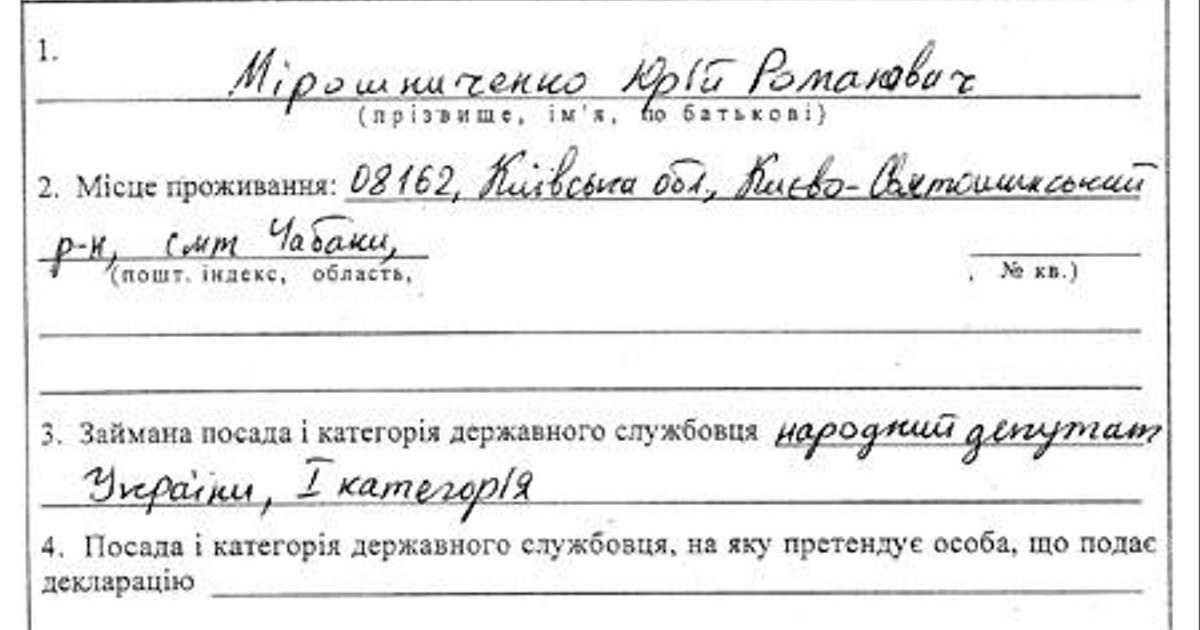 1.
Мірошниченко Юрій Романович
(прізвище, ім'я, по батькові)
2. Місце проживання: 08162, Київська обл., Києво-Святошинський
р-н, смт Чабани,
(пошт. індекс, область,
, № кв.)
3. Займана посада і категорія державного службовця народний депутат
України, І категорія
4. Посада і категорія державного службовця, на яку претендує особа, що подає
декларацію